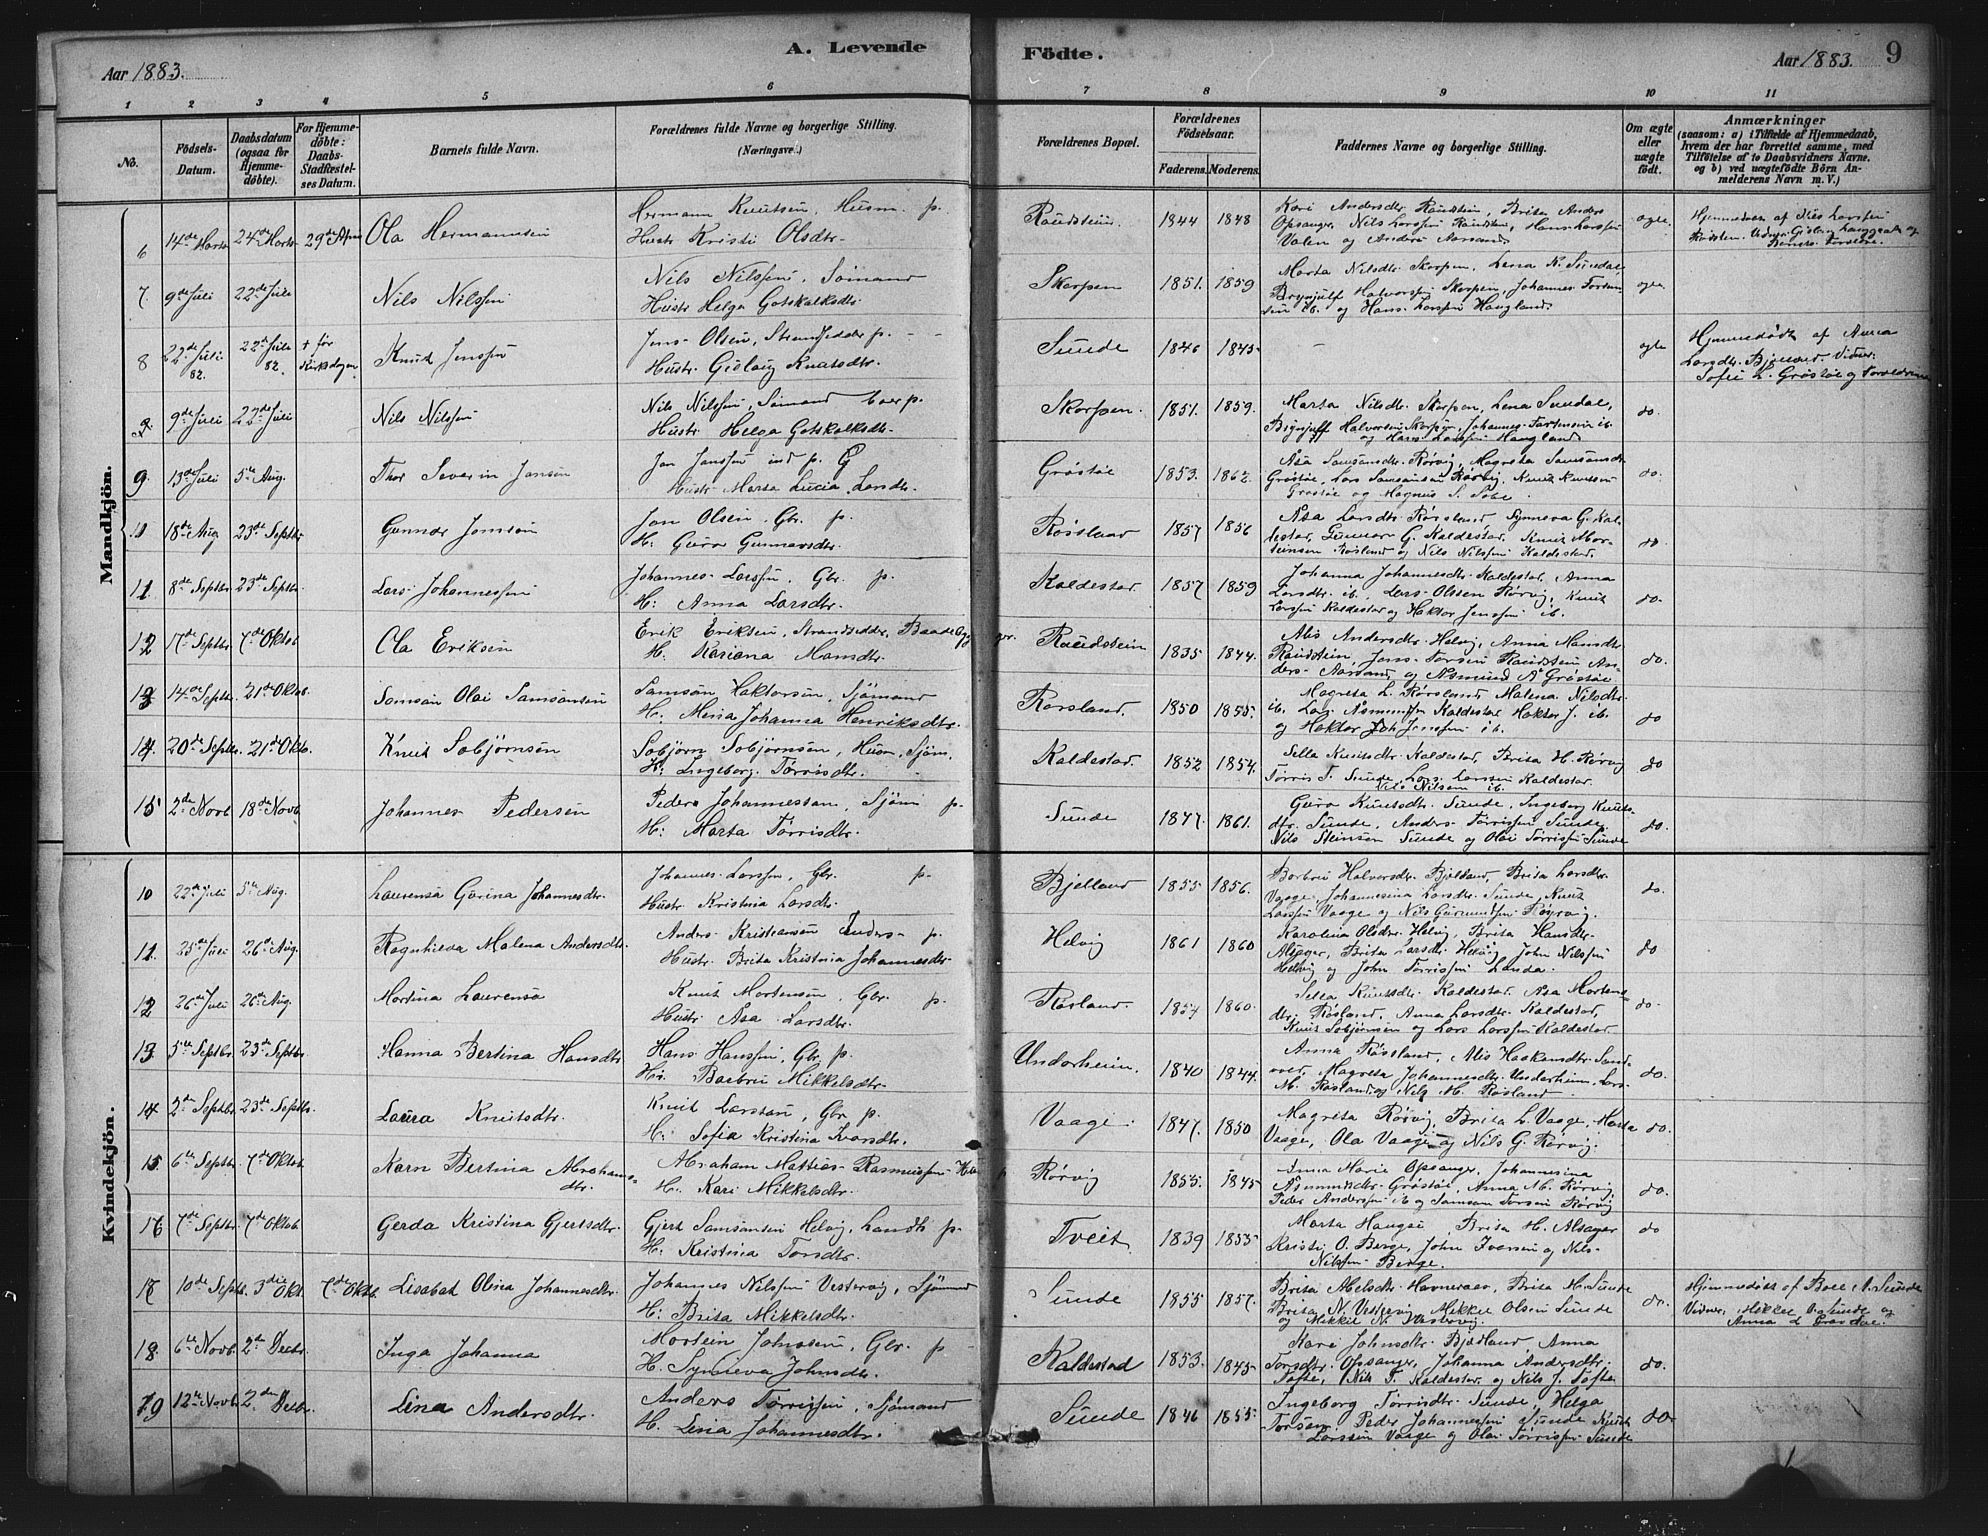 A. Levende Födte.
Aar 1883.
Aar 1883. 9
1 2 3 4 5 6 7 8 9 10 11
No.
Födsels-Datum.
Daabsdatum (ogsaa for Hjemmedöbte).
For Hjemmedöbte: Daabs-Stadfæstelses Datum.
Barnets fulde Navn.
Forældrenes fulde Navne og borgerlige Stilling. (Næringsvei.)
Forældrenes Bopæl.
Forældrenes Födselsaar.
Faderens. Moderens.
Faddernes Navne og borgerlige Stilling.
Om ægte eller uægte födt.
Anmærkninger (saasom: a) i Tilfælde af Hjemmedaab, hvem der har forrettet samme, med Tilföielse af to Daabsvidners Navne. og b) ved uægtefödte Börn Anmelderens Navn m. V.)
Mandkjön.
6 14de Marts 24de Marts 29de April Ola Hermannsen
Hermann Knutsen, Husm. p.
Hustr Kristi Olsdtr.
Raudstein 1844 1848
Kari Andersdtr. Raudstein, Brita Anders
Opsanger, Nils Larssen Raudstein, Hans Larssen
Valen og Anders Aarsand
ægte
7. 9de Juli 22de Juli Nils Nilssen
Nils Nilssen, Sömand
Hustr Helga Gotskalksdtr.
Skorpen 1851. 1859
Marta Nilsdtr. Skorpen, Lena K. Sundal,
Brynjulf Halvorssen Skorpen, Johannes Torsten
sen ib. og Hans Larssen Haugland.
ægte
8 22de Juli 82. 22de Juli 82. + før Kirkedagen Knud Jenssen
Jens Olsen, Strandsidder p.
Hustr. Gjelaug Knutsdtr.
Sunde 1846 1845 -
ægte
Hjemmedøbt af Anna
Larsdtr. Bjelland. Vidner:
Sofie L. Grøstøe og Forældrene
9. 9de Juli 22de Juli Nils Nilssen
Nils Nilssen, Sömand p.
Hustr Helga Gotskalksdtr.
Skorpen. 1851. 1859.
Marta Nilsdtr. Skorpen, Lena Sundal,
Brynjulf Halvorsen Skorpen, Johannes Torstensen ib.
og Hans Larssen Haugland
do.
9. 13de Juli 5te Aug. Thor Severin Jansen
Jan Janssen ind p. G
Hustr Marta Lucia Larsdtr.
Grøstøe 1853. 1862.
Asa Samsonsdtr. Rørvig, Magreta Samsonsdtr.
Grøstøe, Lars Samsonsen Rørvig, Knut Knutssen
Grøstøe og Magnus S. Søbe.
do.
10 18de Aug 23de Septbr. Gunnar Jonsøn
Jon Olsen, Gbr. p.
H: Guro Gunnarsdtr.
Røsland 1857 1856
Asa Larsdtr. Rørsland, Synneva G. Kal-
destad, Gunnar G. Kaldestad, Knut Mor-
tensen Røsland og Nils Nilssen Kaldestad.
do
11 8de Septbr. 23de Septbr. Lars Johannessen
Johannes Larssen, Gbr. p.
H: Anna Larsdtr.
Kaldestad 1857 1859
Johanna Johannesdtr. Kaldestad, Anna
Larsdtr. ib., Lars Olssen Rørvig, Knut
Larssen Kaldestad og Haktor Jenssen ib.
do.
12 17de Septbr. 7de Oktob Ola Eriksen
Erik Eriksen, Strandsidder, Baadebygger.
H. Kariana Mansdtr.
Raudstein 1835 1844.
Alis Andersdtr. Helvig, Anna Mansdtr.
Raudstein, Jens Torsen Raudstein An-
ders Aarsand og Asmund A Grøstøe
do.
13 14de Septbr. 21de Oktob. Samson Olai Samsonsen
Samson Haktorsen, Sjömand
H. Mina Johanna Henriksdtr.
Rørsland. 1850 1855.
Magreta L. Rørsland, Malena Nilsdtr.
ib. Lars Asmundsen Kaldestad Haktor J. ib.
og Haktor Joh Jenssen ib.
do
14. 20de Septbr. 21de Oktb. Knut Sobjørnsen
Sobjørn Sobjørnsen, Husm. Sjøm.
H: Ingeborg Tørrisdtr.
Kaldestad. 1852 1854.
Sella Knutsdtr. Kaldestad, Brita H. Rørvig
Tørris T. Sunde, Lars Larssen Kaldestad
Nils Nilsen ib.
do
15 2de Novb 18de Novb. Johannes Pedersen
Peder Johannessen, Sjøm p.
H: Marta Tørrisdtr.
Sunde 1847. 1861.
Guro Knutsdtr. Sunde, Ingeborg Knuts-
dtr. Sunde, Anders Tørrissen Sunde,
Nils Steinsen Sunde og Olai Tørrissen Sunde
do.
Kvindekjön.
10 22de Juli 5te Aug. Laurensa Gurina Johannesdtr.
Johannes Larssen, Gbr. p.
Hustr. Kristina Larsdtr.
Bjelland 1855 1856.
Barbru Halvorsdtr. Bjelland, Brita Larsdtr.
Vaage, Johannesina Larsdtr. Sunde, Knut
Larssen Vaage og Nils Gurmundsen Rørvig.
do.
11. 25de Juli 26de Aug. Ragnhilda Malena Andersdtr.
Anders Kristiansen p.
Hustr. Brita Kristina Johannesdtr
Helvig 1861 1860
Karolina Olsdtr. Helvig, Brita Hansdtr.
Alsager, Brita Larsdtr. Helvig John Nilssen
Helvig og John Tørrissen Landa.
do
12 26de Juli 26de Aug. Martina Laurensa
Knut Mortensen, Gbr. p.
Hustr. Asa Larsdtr.
Røsland 1854 1860.
Sella Knutsdtr. Kaldestad, Asa Mortens-
dtr. Røsland, Anna Larsdtr. Kaldestad,
Knut Sobjørnsen og Lars Larssen Kaldestad.
do.
13 5te Septbr. 23de Septbr. Hanna Bertina Hansdtr
Hans Hanssen, Gbr. p.
H: Barbru Mikkelsdtr.
Undarheim. 1840 1844.
Anna Røssland, Alis Haakonsdtr. Sand-
over, Magreta Johannesdtr. Undarheim, Lars
M. Røsland og Nils M. Røsland.
do.
14. 2de Septbr. 23de Septbr. Laura Knutsdtr.
Knut Larssøn, Gbr p.
H: Sofia Kristina Ivarsdtr.
Vaage. 1847. 1850
Magreta Rørvig, Brita L. Vaage, Marta
Vaage, Ola Vaage og Nils G. Rørvig.
do.
15 6te Septbr 7de Oktob Karn Bertina Abrahams-
dtr.
Abraham Mattias Rasmussen
H. Kari Mikkelsdtr.
Rørvig 1855. 1845
Anna Marie Opsanger, Johannesina
Asmundsdtr. Grøstøe, Anna M. Rørvig
Peder Anderssen ib og Samson Torsen Rørvig
do.
16 7de Septbr. 7de Oktob Gerda Kristina Gjertsdtr.
Gjert Samsonsen Helvig, Landh. p.
H. Kristina Torsdtr.
Tveit. 1839 1855
Marta Haugse, Brita H. Alsager
Kristi O. Berge, John Iversen og Nils
Nilssen Berge.
do
17 10de Septb. 3die Okt. 7de Oktb. Lisabet Olina Johannesdtr.
Johannes Nilssen Vestervig, Sjömand
H: Brita Mikkelsdtr.
Sunde 1855 1857.
Brita Nilsdtr. Havneraas, Brita M. Sunde
Brita N. Vestervig, Mikkel Olsen Sunde
og Mikkel N. Vestervig.
do.
Hjemmedøbt af Boel A. Sunde
Vidner, Mikkel O. Sunde og
Anna L Grøstøe.
18. 6te Novb. 2de Decbr. Inga Johanna
Mortein Johnssen, Gbr. p
H. Synneva Johnsdtr.
Kaldestad 1853. 1845
Kari Johnsdtr. Bjelland, Anna
Torsdtr. Opsanger, Johanna Andersdtr.
Tofte, Nils T. Kaldestad og Nils J. Tofte
do.
19 12te Novb. 2de Decbr Lina Andersdtr.
Anders Tørrissen, Sjömand
H. Lina Johannesdtr.
Sunde 1846 1855.
Ingeborg Tørrisdtr. Sunde, Helga
Torsdtr. Peder Johannessen Sunde Knut
Larssen Vaage og Olai Tørrissen Sunde
do.